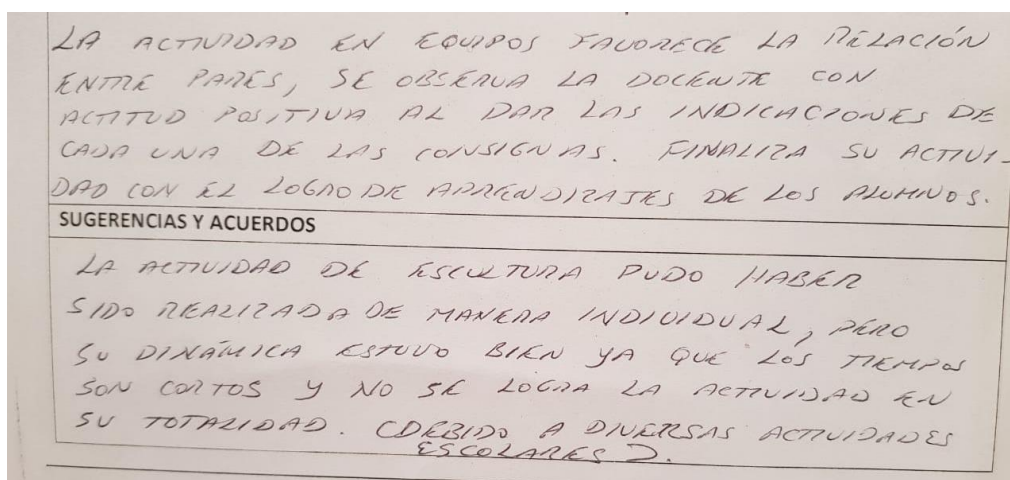 LA ACTIVIDAD EN EQUIPOS FAVORECE LA RELACIÓN
ENTRE PARES, SE OBSERVA LA DOCENTE CON
ACTITUD POSITIVA AL DAR LAS INDICACIONES DE
CADA UNA DE LAS CONSIGNAS. FINALIZA SU ACTIVI-
DAD CON EL LOGRO DE APRENDIZAJES DE LOS ALUMNOS.
SUGERENCIAS Y ACUERDOS
LA ACTIVIDAD DE ESCULTURA PUDO HABER
SIDO REALIZADA DE MANERA INDIVIDUAL, PERO
SU DINÁMICA ESTUVO BIEN YA QUE LOS TIEMPOS
SON CORTOS Y NO SE LOGRA LA ACTIVIDAD EN
SU TOTALIDAD. (DEBIDO A DIVERSAS ACTIVIDADES
ESCOLARES).